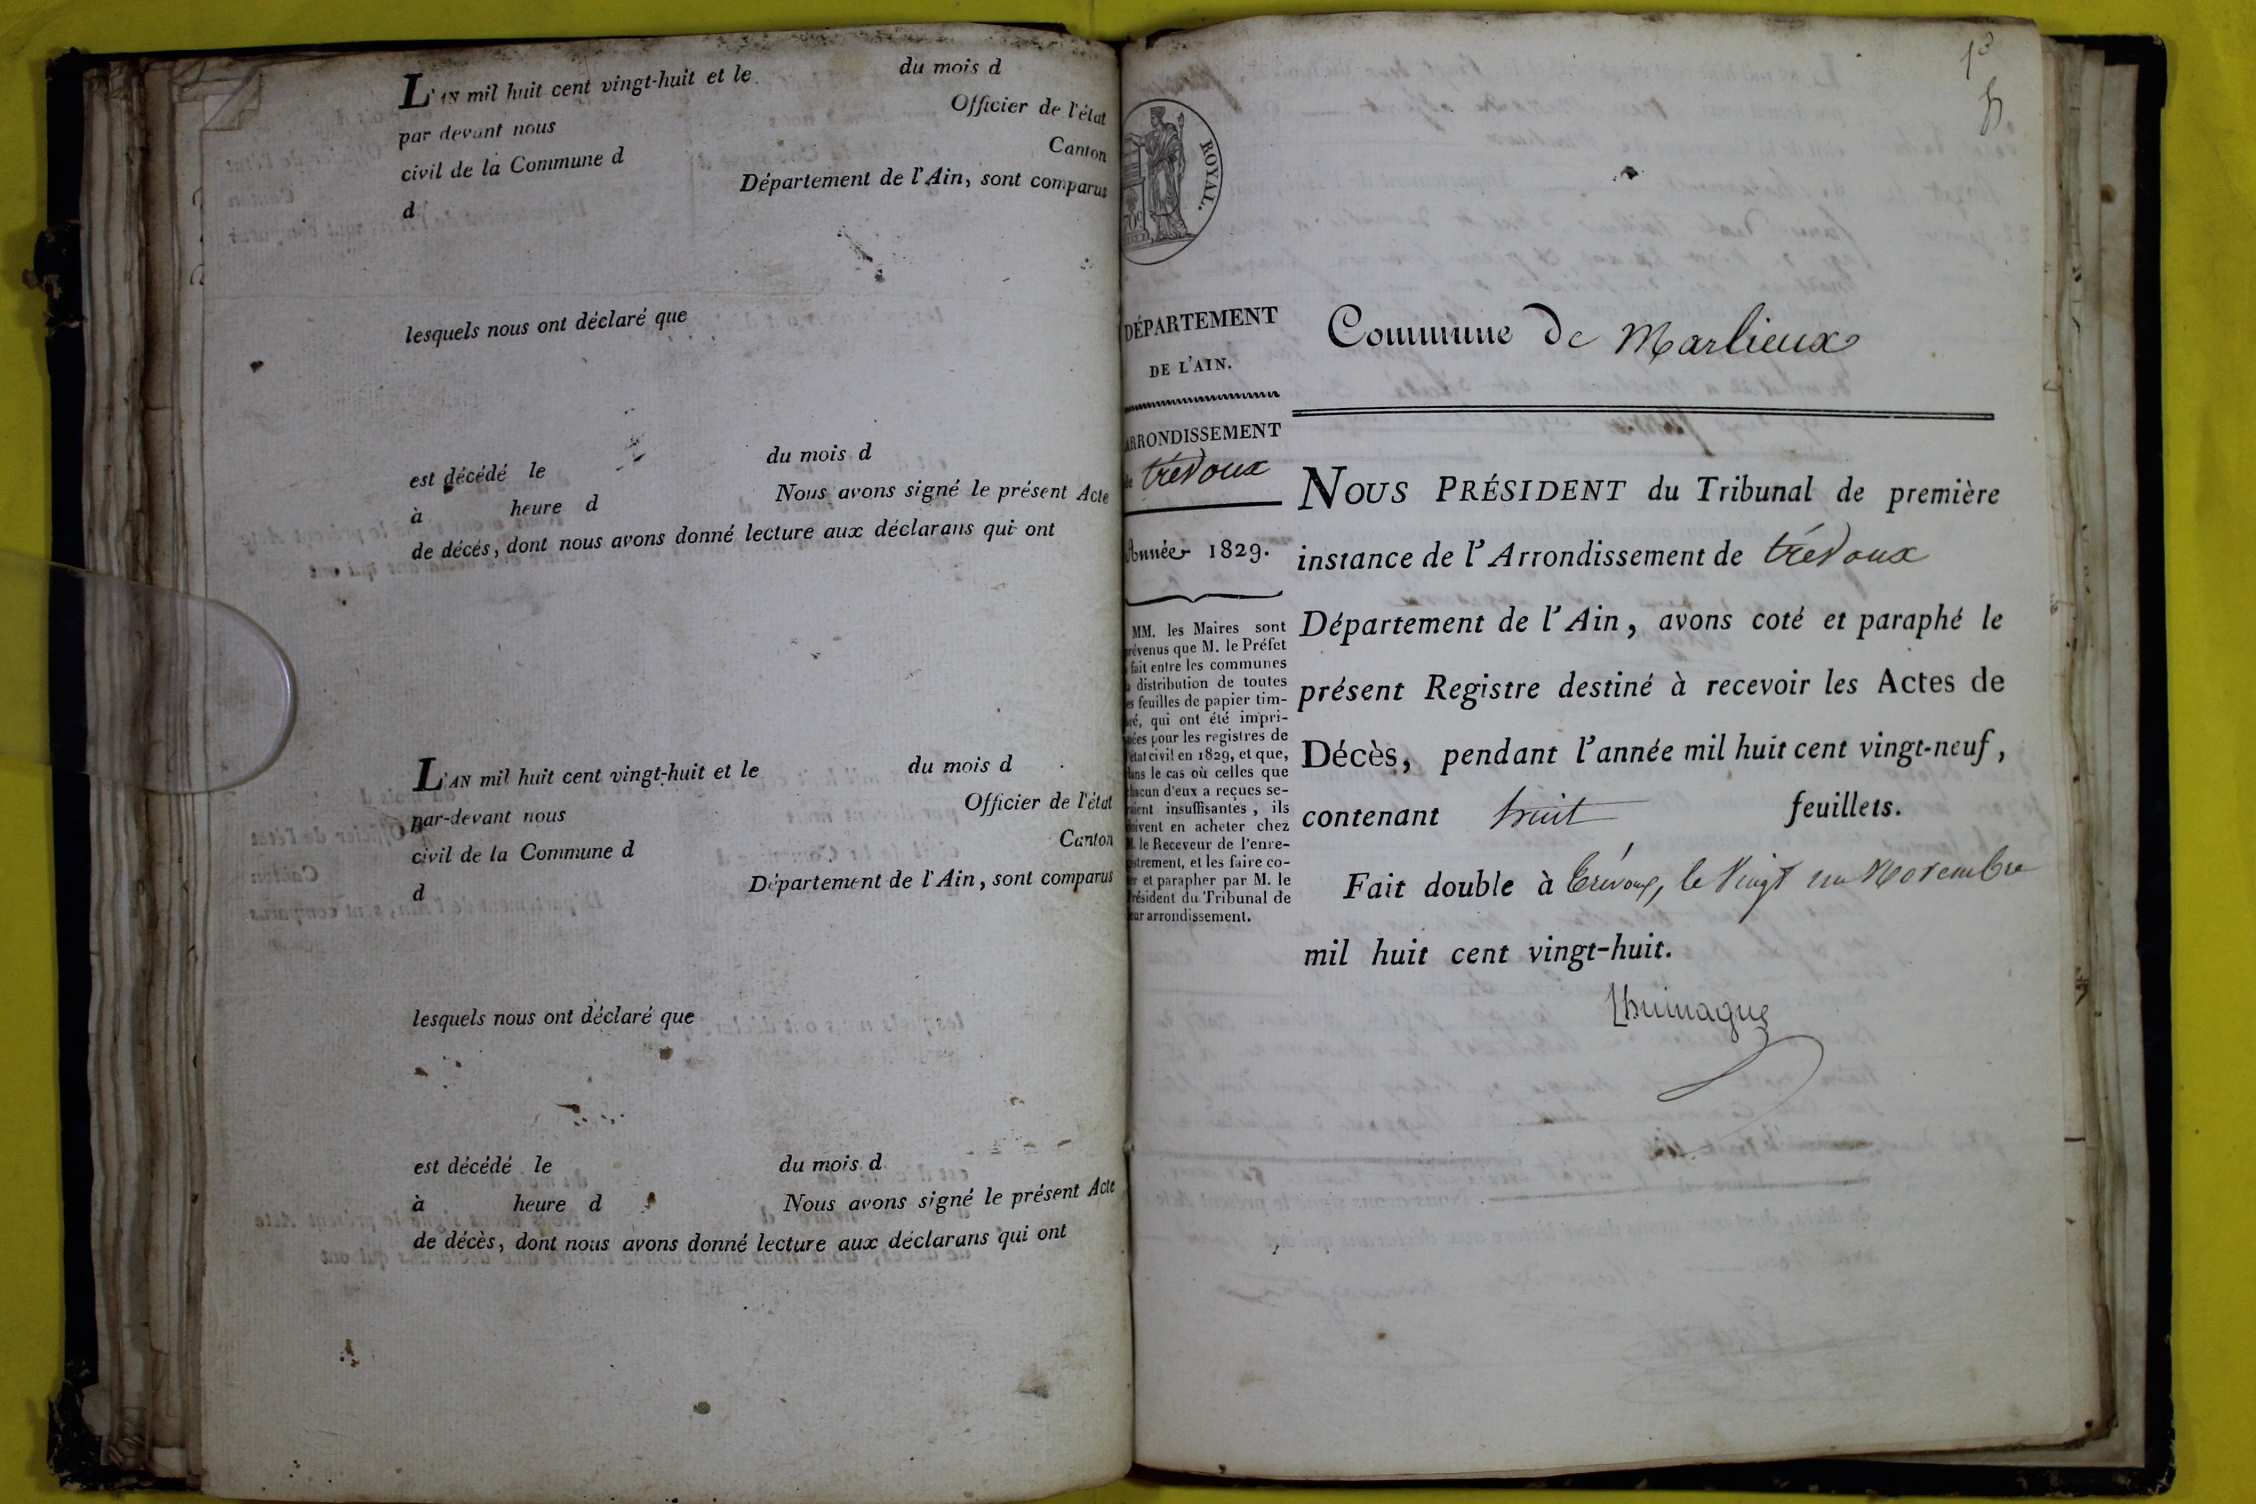 L'AN mil huit cent vingt-huit et le du mois d
par devant nous Officier de l'état
civil de la Commune d Canton
d Département de l'Ain, sont comparus
lesquels nous ont déclaré que
est décédé le du mois d
à heure d Nous avons signé le présent Acte
de décés, dont nous avons donné lecture aux déclarans qui ont
L'AN mil huit cent vingt-huit et le du mois d
par-devant nous Officier de l'état
civil de la Commune d Canton
d Département de l'Ain, sont comparus
lesquels nous ont déclaré que
est décédé le du mois d
à heure d Nous avons signé le présent Acte
de décès, dont nous avons donné lecture aux déclarans qui ont
ROYAL.
DÉPARTEMENT
DE L'AIN.
ARRONDISSEMENT
de trévoux
Année 1829.
MM. les Maires sont
prévenus que M. le Préfet
a fait entre les communes
la distribution de toutes
les feuilles de papier tim-
bré, qui ont été impri-
mées pour les registres de
l'état civil en 1829, et que,
dans le cas où celles que
chacun d'eux a reçues se-
raient insuffisantes, ils
doivent en acheter chez
M. le Receveur de l'enre-
gistrement, et les faire co-
ter et parapher par M. le
Président du Tribunal de
leur arrondissement.
Commune de Marlieux
NOUS PRÉSIDENT du Tribunal de première
instance de l'Arrondissement de trévoux
Département de l'Ain, avons coté et paraphé le
présent Registre destiné à recevoir les Actes de
Décès, pendant l'année mil huit cent vingt-neuf,
contenant huit feuillets.
Fait double à Trévoux, le Vingt un Novembre
mil huit cent vingt-huit.